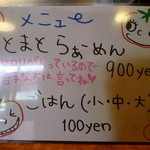 メニュー
とまとらぁーめん
900yen
っているので
な方は言ってね
ごはん(小・中・大)
100yen